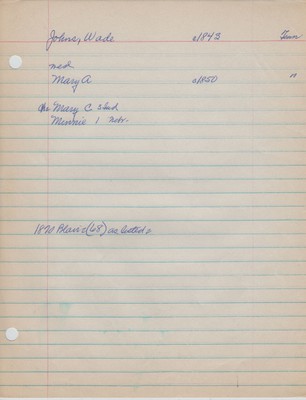 Johns, Wade c1843 Tenn
md
Mary A c1850 "
ch Mary C. 2 Ind
Minnie 1 Nebr.
1870 Blaine (68) as listed